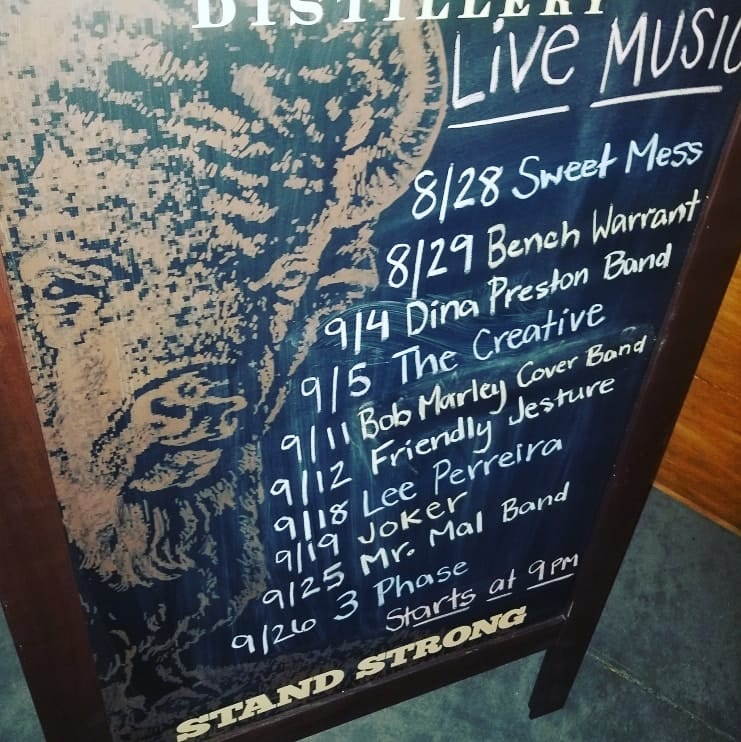 DISTILLERY
Live MUSIC
8/28 Sweet Mess
8/29 Bench Warrant
9/4 Dina Preston Band
9/5 The Creative
9/11 Bob Marley Cover Band
9/12 Friendly Jesture
9/18 Lee Perreira
9/19 JOKER
9/25 Mr. Mal Band
9/26 3 Phase
Starts at 9 PM
STAND STRONG